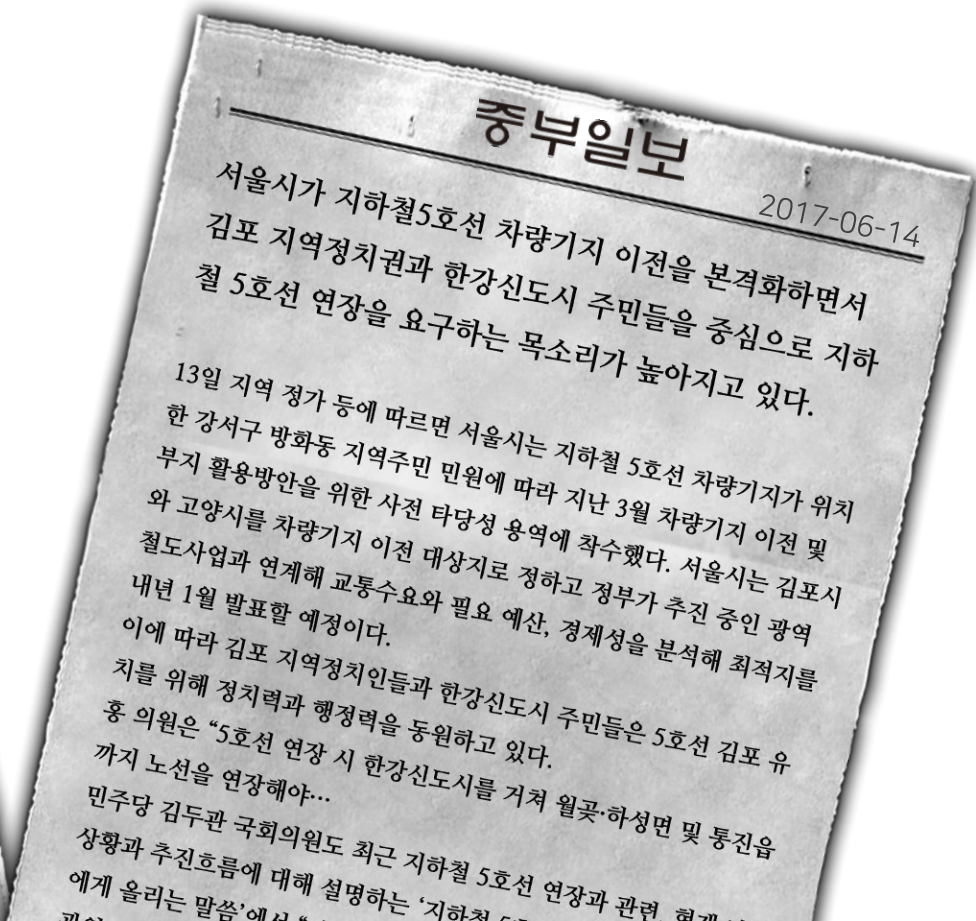 중부일보
2017-06-14
서울시가 지하철5호선 차량기지 이전을 본격화하면서
김포 지역정치권과 한강신도시 주민들을 중심으로 지하
철 5호선 연장을 요구하는 목소리가 높아지고 있다.
13일 지역 정가 등에 따르면 서울시는 지하철 5호선 차량기지가 위치
한 강서구 방화동 지역주민 민원에 따라 지난 3월 차량기지 이전 및
부지 활용방안을 위한 사전 타당성 용역에 착수했다. 서울시는 김포시
와 고양시를 차량기지 이전 대상지로 정하고 정부가 추진 중인 광역
철도사업과 연계해 교통수요와 필요 예산, 경제성을 분석해 최적지를
내년 1월 발표할 예정이다.
이에 따라 김포 지역정치인들과 한강신도시 주민들은 5호선 김포 유
치를 위해 정치력과 행정력을 동원하고 있다.
홍 의원은 “5호선 연장 시 한강신도시를 거쳐 월곶·하성면 및 통진읍
까지 노선을 연장해야…
민주당 김두관 국회의원도 최근 지하철 5호선 연장과 관련, 현재
상황과 추진흐름에 대해 설명하는 ‘지하철
에게 올리는 말씀’에서